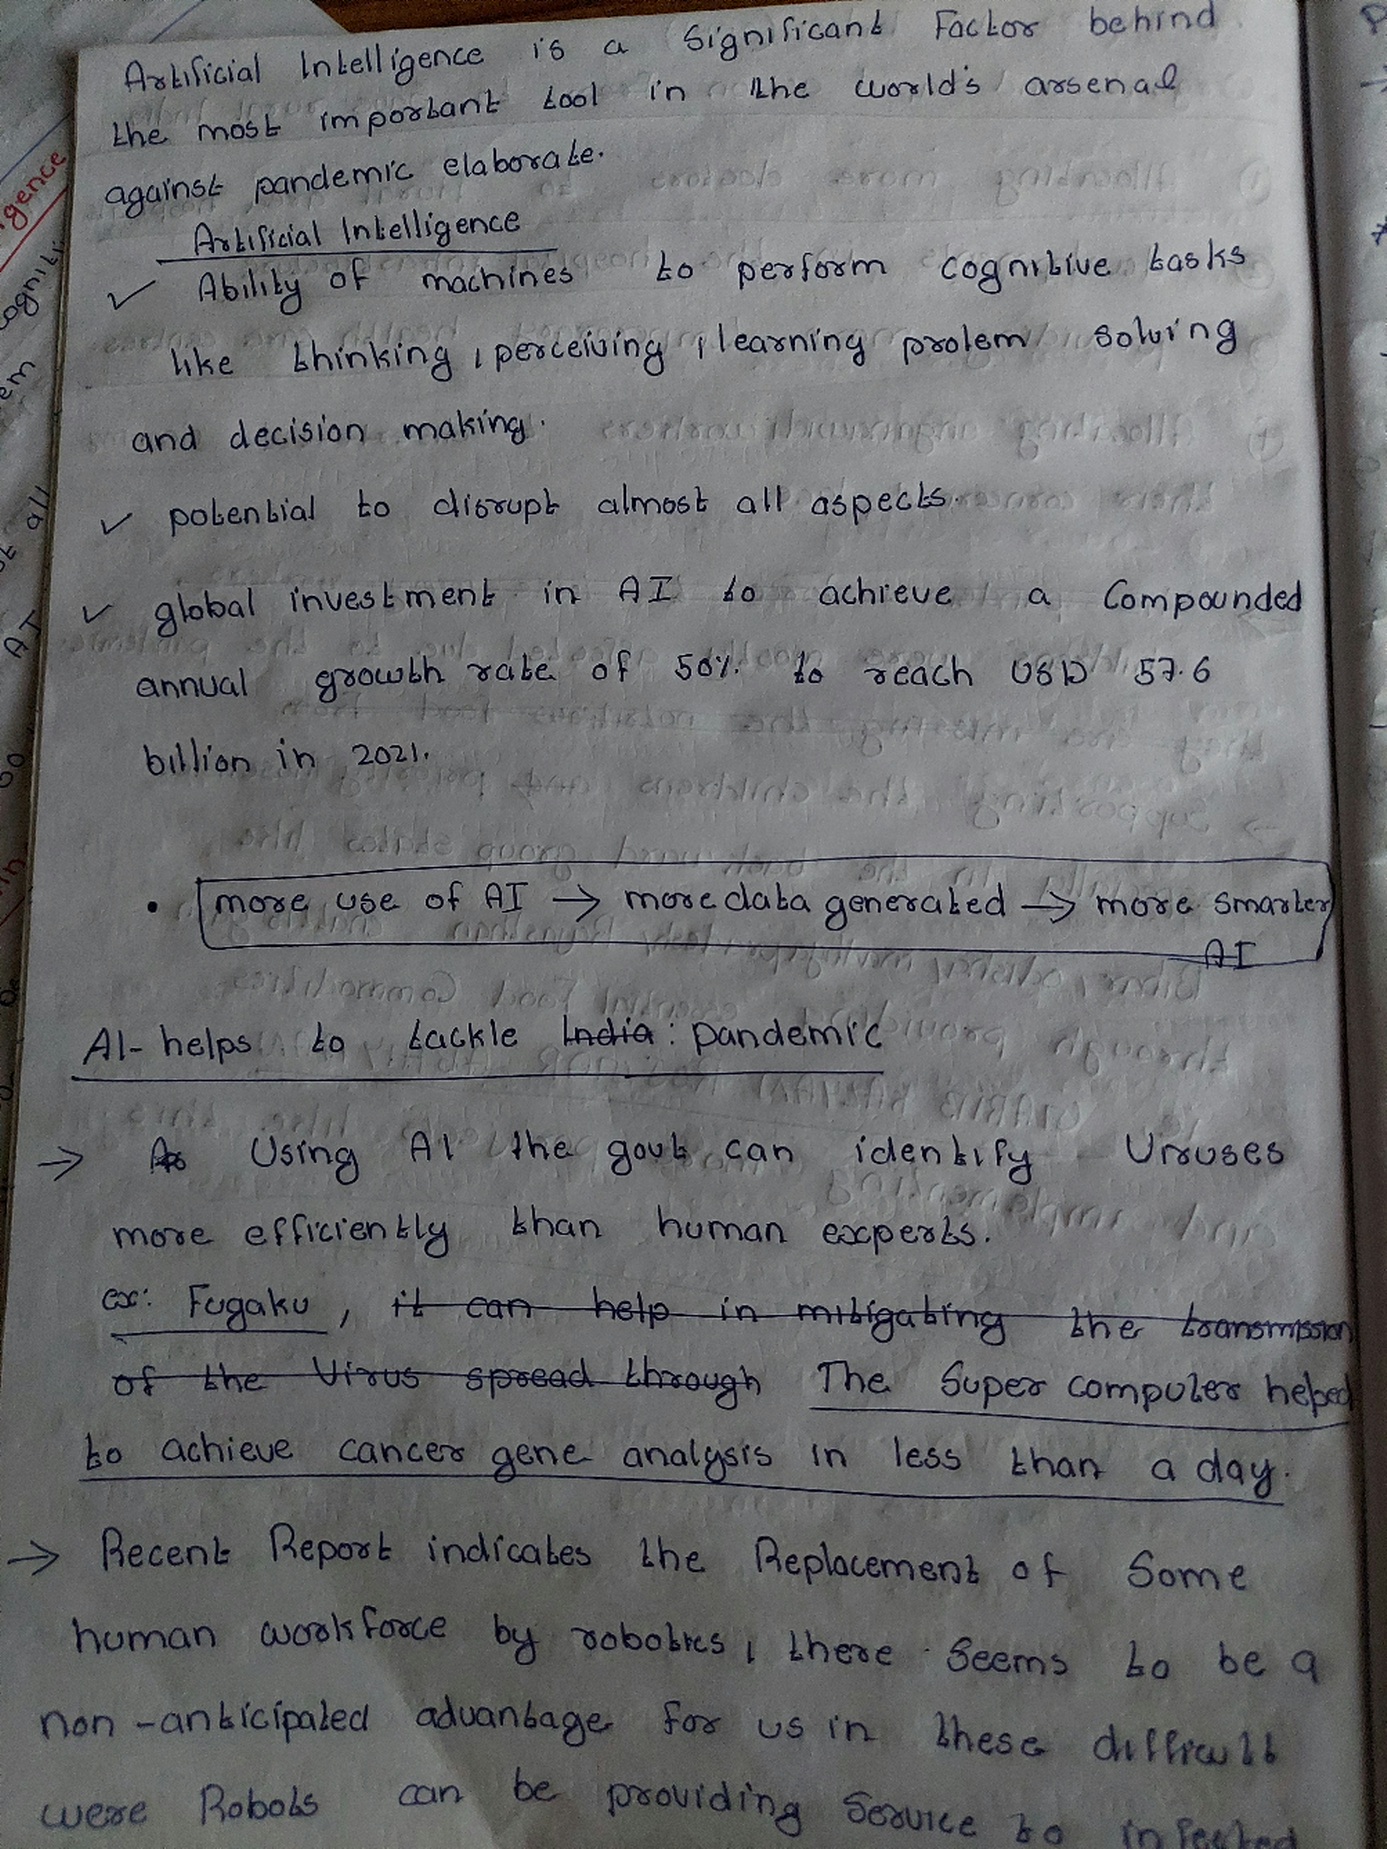 Artificial Intelligence is a significant Factor behind
the most important tool in the world's arsenal
against pandemic elaborate.
Artificial Intelligence
✓ Ability of machines to perform cognitive tasks
like thinking, perceiving, learning prolem solving
and decision making.
✓ potential to disrupt almost all aspects.
✓ global investment in AI to achieve a compounded
annual growth rate of 50% to reach USD 57.6
billion in 2021.
• more use of AI → more data generated → more smarter
AI
AI- helps to tackle India : pandemic
→ As Using AI the govt can identify Viruses
more efficiently than human experts.
ex: Fugaku, it can help in mitigating the transmission
of the Virus spread through The Super computer helped
to achieve cancer gene analysis in less than a day.
→ Recent Report indicates the Replacement of Some
human workforce by robotics, there seems to be a
non-anticipated advantage for us in these difficult
were Robots can be providing service to infected